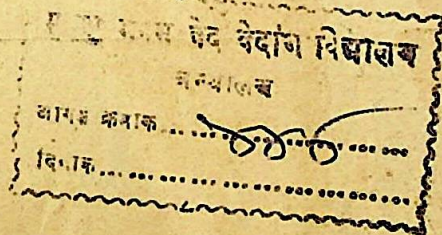 भवन वेद वेदांग विद्यालय
ग्रन्थालय
आगत क्रमांक....................
दिनांक..............................